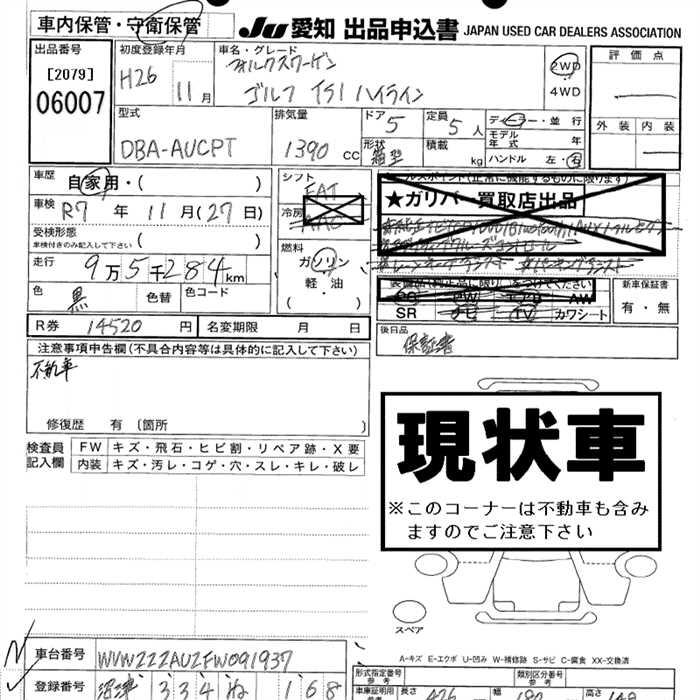 車内保管・守衛保管 JU 愛知 出品申込書 JAPAN USED CAR DEALERS ASSOCIATION
出品番号 初度登録年月 車名・グレード 評価点
[2079] H26 11月 フォルクスワーゲン 2WD
06007 ゴルフ TSI ハイライン 4WD
型式 排気量 ドア 定員 ディーラー・並行 外装 内装
DBA-AUCPT 1390 cc 5 5人 モデル年式 年
形状 箱型 積載 kg ハンドル 左・右
車歴 自家用・( ) シフト FAT セールスポイント(正常に機能するものに限ります)
車検 R7年 11月(27日) 冷房 AAC ★ガリバー買取店出品
受検形態
車検付きのみ記入して下さい ( ) 燃料
走行 9万5千284km ガソリン
軽油
( ・ )
色 黒 色替 色コード 装備品(純正品に限り)をつけてください 新車保証書
SR ナビ TV カワシート 有・無
R券 14520円 名変期限 月 日 後日品
保証書
注意事項申告欄(不具合内容等は具体的に記入して下さい)
不動車
修復歴 有 〔箇所 〕
検査員記入欄 FW キズ・飛石・ヒビ割・リペア跡・X要
内装 キズ・汚レ・コゲ・穴・スレ・キレ・破レ
現状車
※このコーナーは不動車も含み
ますのでご注意下さい
スペア
A-キズ E-エクボ U-凹み W-補修跡 S-サビ C-腐食 XX-交換済
車台番号 WVWZZZAUZFW091937
形式指定番号 参考 類別区分番号 参考
登録番号 沼津 334 ね 168
車庫証明用 参考 長さ 426 幅 180 高さ 148